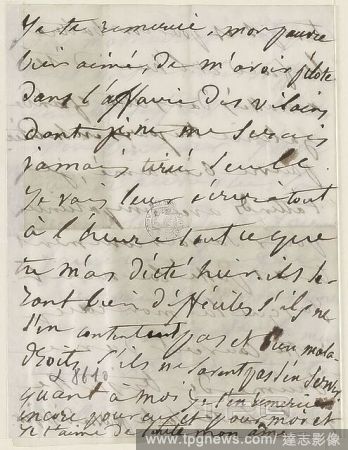 Je te remercie, mon pauvre
bien aimé, de m'avoir pilotée
dans l'affaire des vilains
dont je ne me serais
jamais tirée seule.
Je vais leur écrire tout
à l'heure tout ce que
tu m'as dicté hier. Ils se-
ront bien difficiles s'ils ne
s'en contentent pas et bien mala-
droits s'ils ne savent pas s'en servir
quant à moi je t'en remercie
encore pour eux et pour moi et
je t'aime de toute mon
www.tpgnews.com / 達志影像